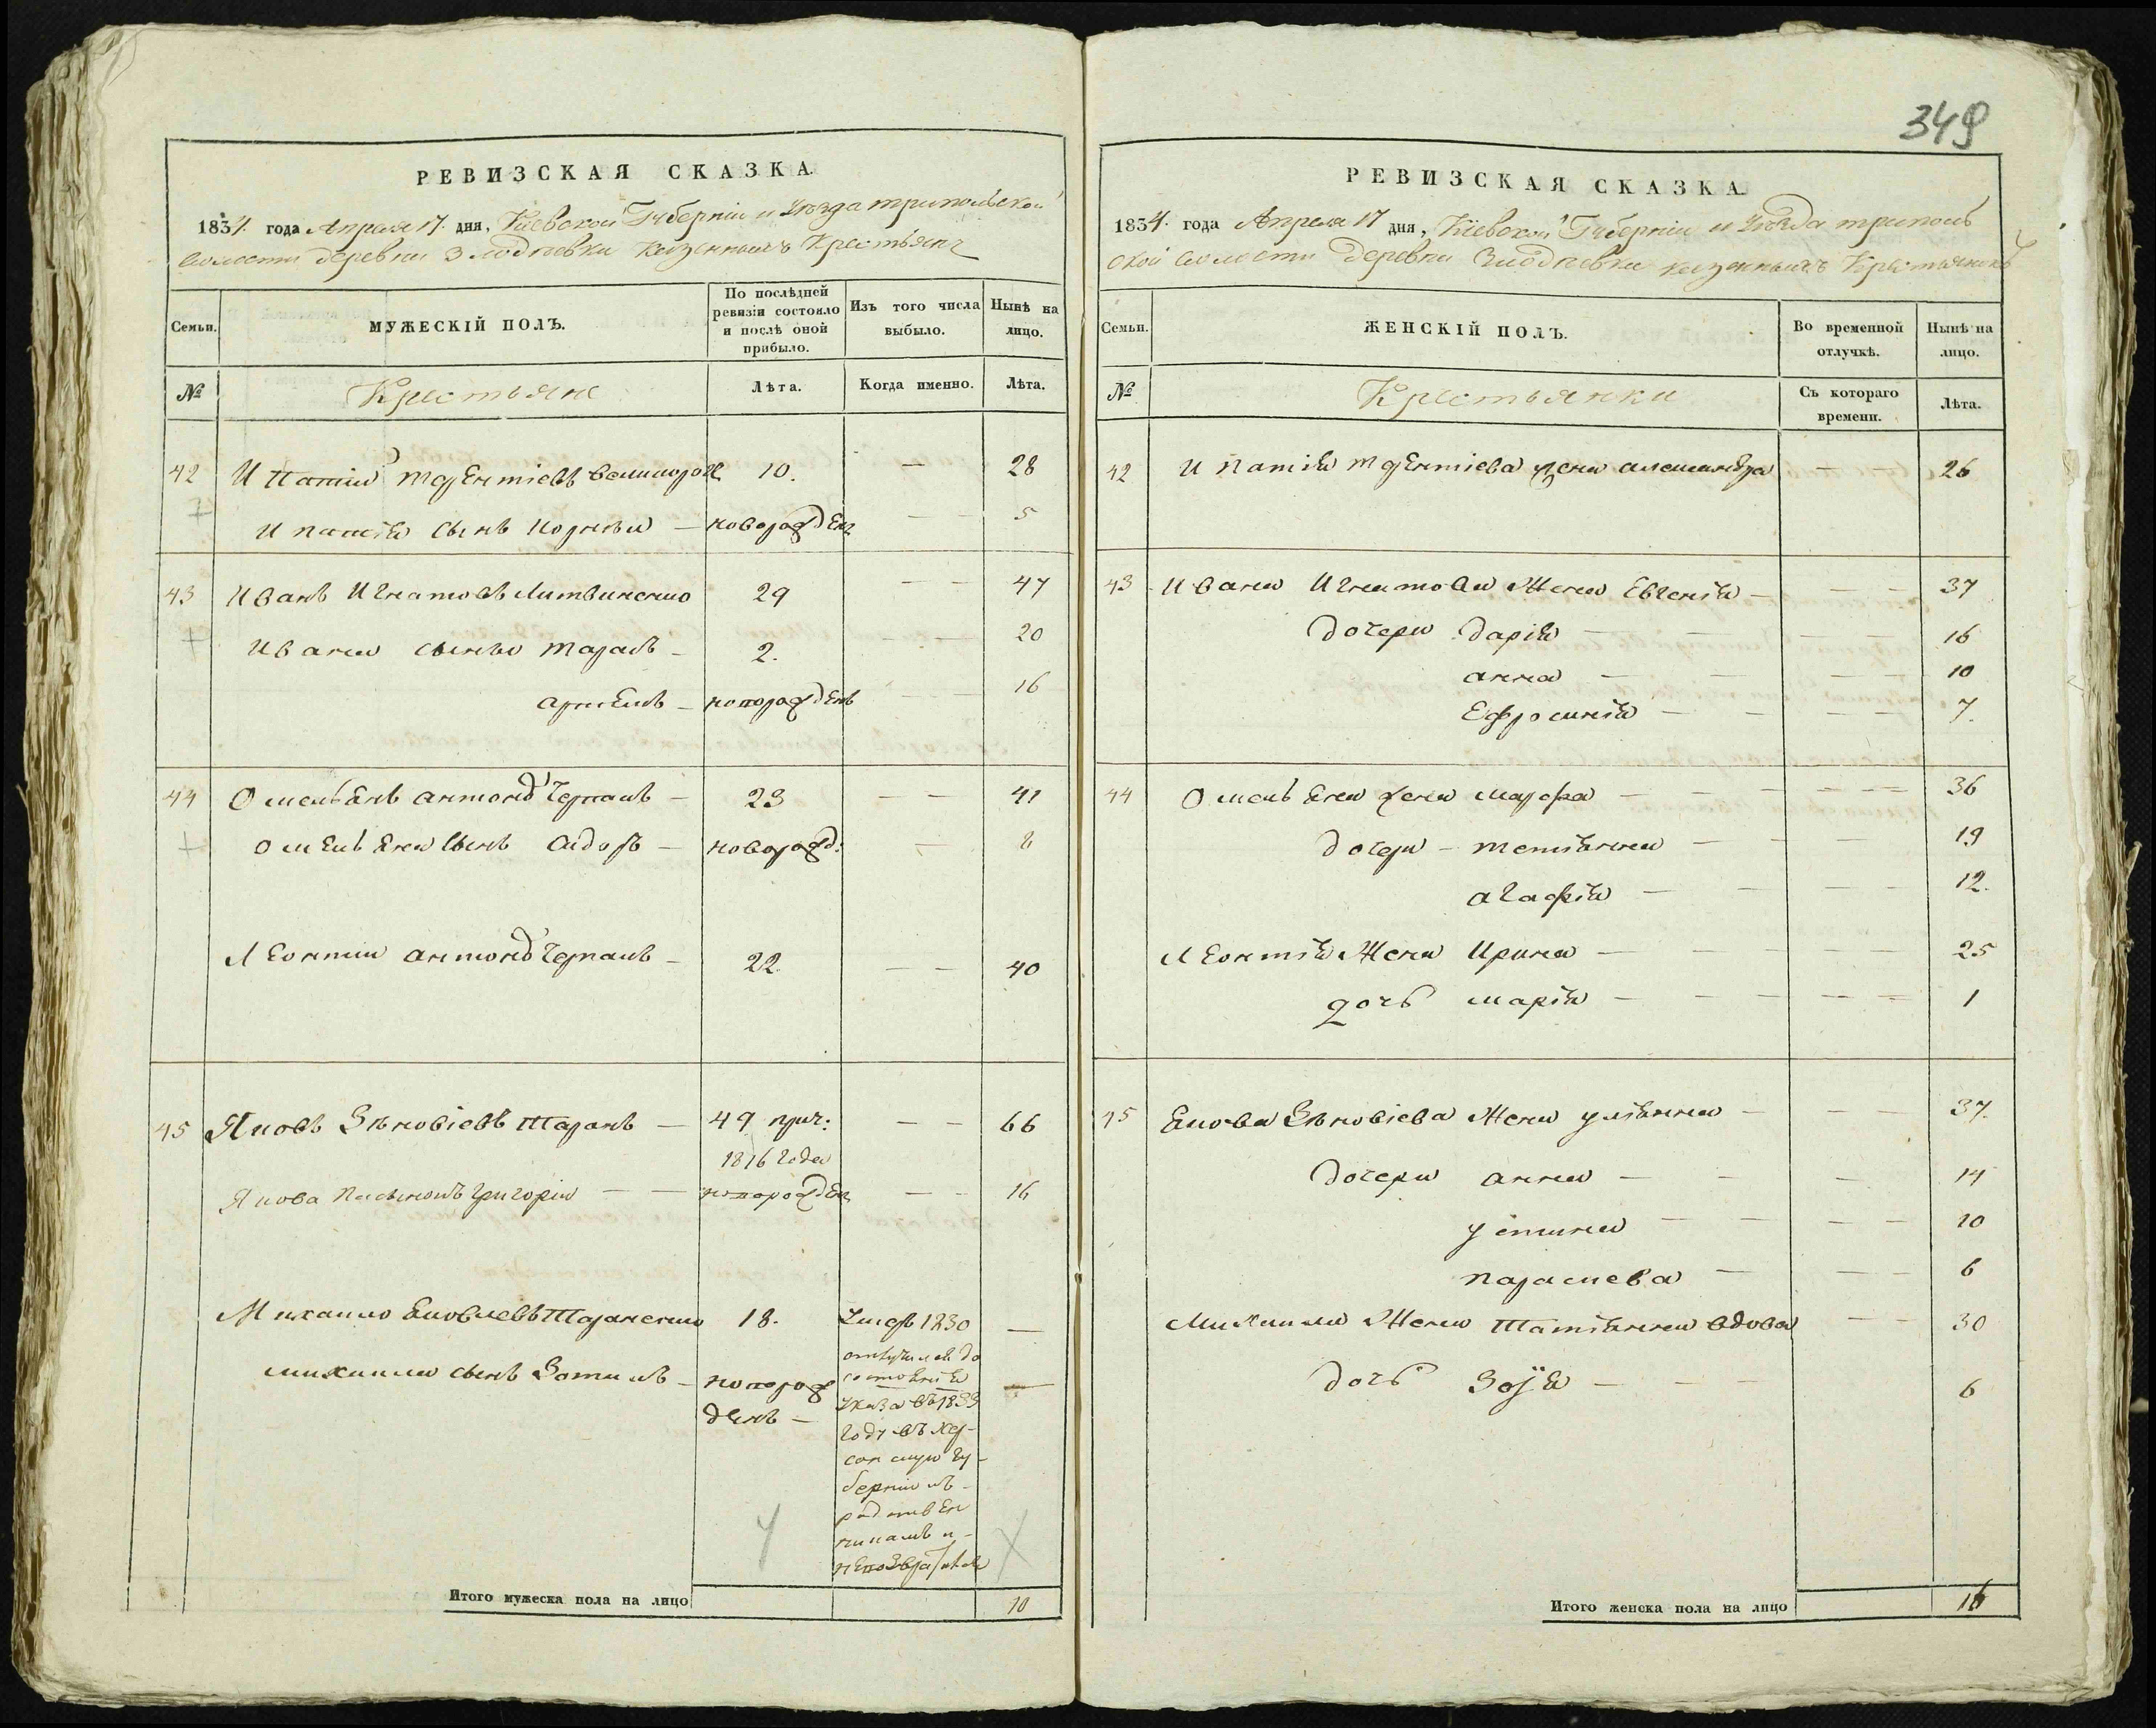 РЕВИЗСКАЯ СКАЗКА.
1834. года Апреля 17. дня, Кіевской Губерніи и Уезда трипольской
волости деревни Злодѣевки казенныхъ Крестьянъ
Семьи.
МУЖЕСКІЙ ПОЛЪ.
По послѣдней ревизіи состояло и послѣ оной прибыло.
Изъ того числа выбыло.
Нынѣ на лицо.
№
Крестьяне
Лѣта.
Когда именно.
Лѣта.
42 Ипатій 10. — 28
Ипатія сынъ Корнѣй — новорожденъ — — 5
43 Иванъ Игнатовъ Литвиненко 29 — — 47
Ивана сыновя Тарасъ — 2. — — 20
новорожденъ — — 16
44 Омельянъ Антоновъ 23 — — 41
Омельяна сынъ Сидоръ — новорожд: — 8
Леонтій Антоновъ 22. — — 40
45 Яковъ Зѣновіевъ Таранъ — 49 прич: — — 66
1816 года
Якова пасынокъ Григорій — — новорожденъ — — 16
Михайло Яковлевъ Тараненко 18. Умеръ 1830 —
михаила сынъ Зотикъ — новорожденъ —
отлучился до
состоянія
указа въ 1833
году въ Хер-
сонскую гу-
бернію къ
родственникамъ и
невозвратился
Итого мужеска пола на лицо 10
349
РЕВИЗСКАЯ СКАЗКА.
1834. года Апреля 17 дня, Кіевской Губерніи и Уезда триполь
ской волости деревни Злодѣевки казенныхъ Крестьянокъ
Семьи.
ЖЕНСКІЙ ПОЛЪ.
Во временной отлучкѣ.
Нынѣ на лицо.
№
Крестьянки
Съ котораго времени.
Лѣта.
42 Ипатія жена александра — — 26
43 Ивана Игнатова Жена Евгенія — — — 37
Дочери Дарія — — — — 16
анна — — — — 10
Ефросинія — — — — 7.
44 Омельяна жена марфа — — — — — 36
дочери — татіанна — — — 19
агафія — — — — 12.
Леонтія Жена Ирина — — — — 25
дочь марія — — — — — 1
45 Якова Зѣновіева Жена уліянна — — — 37.
Дочери анна — — — 14
устина — — — — 10
параскева — — — 6
Михаила Жена Татіянна вдова — — 30
дочь Зоя — — — 6
Итого женска пола на лицо 16